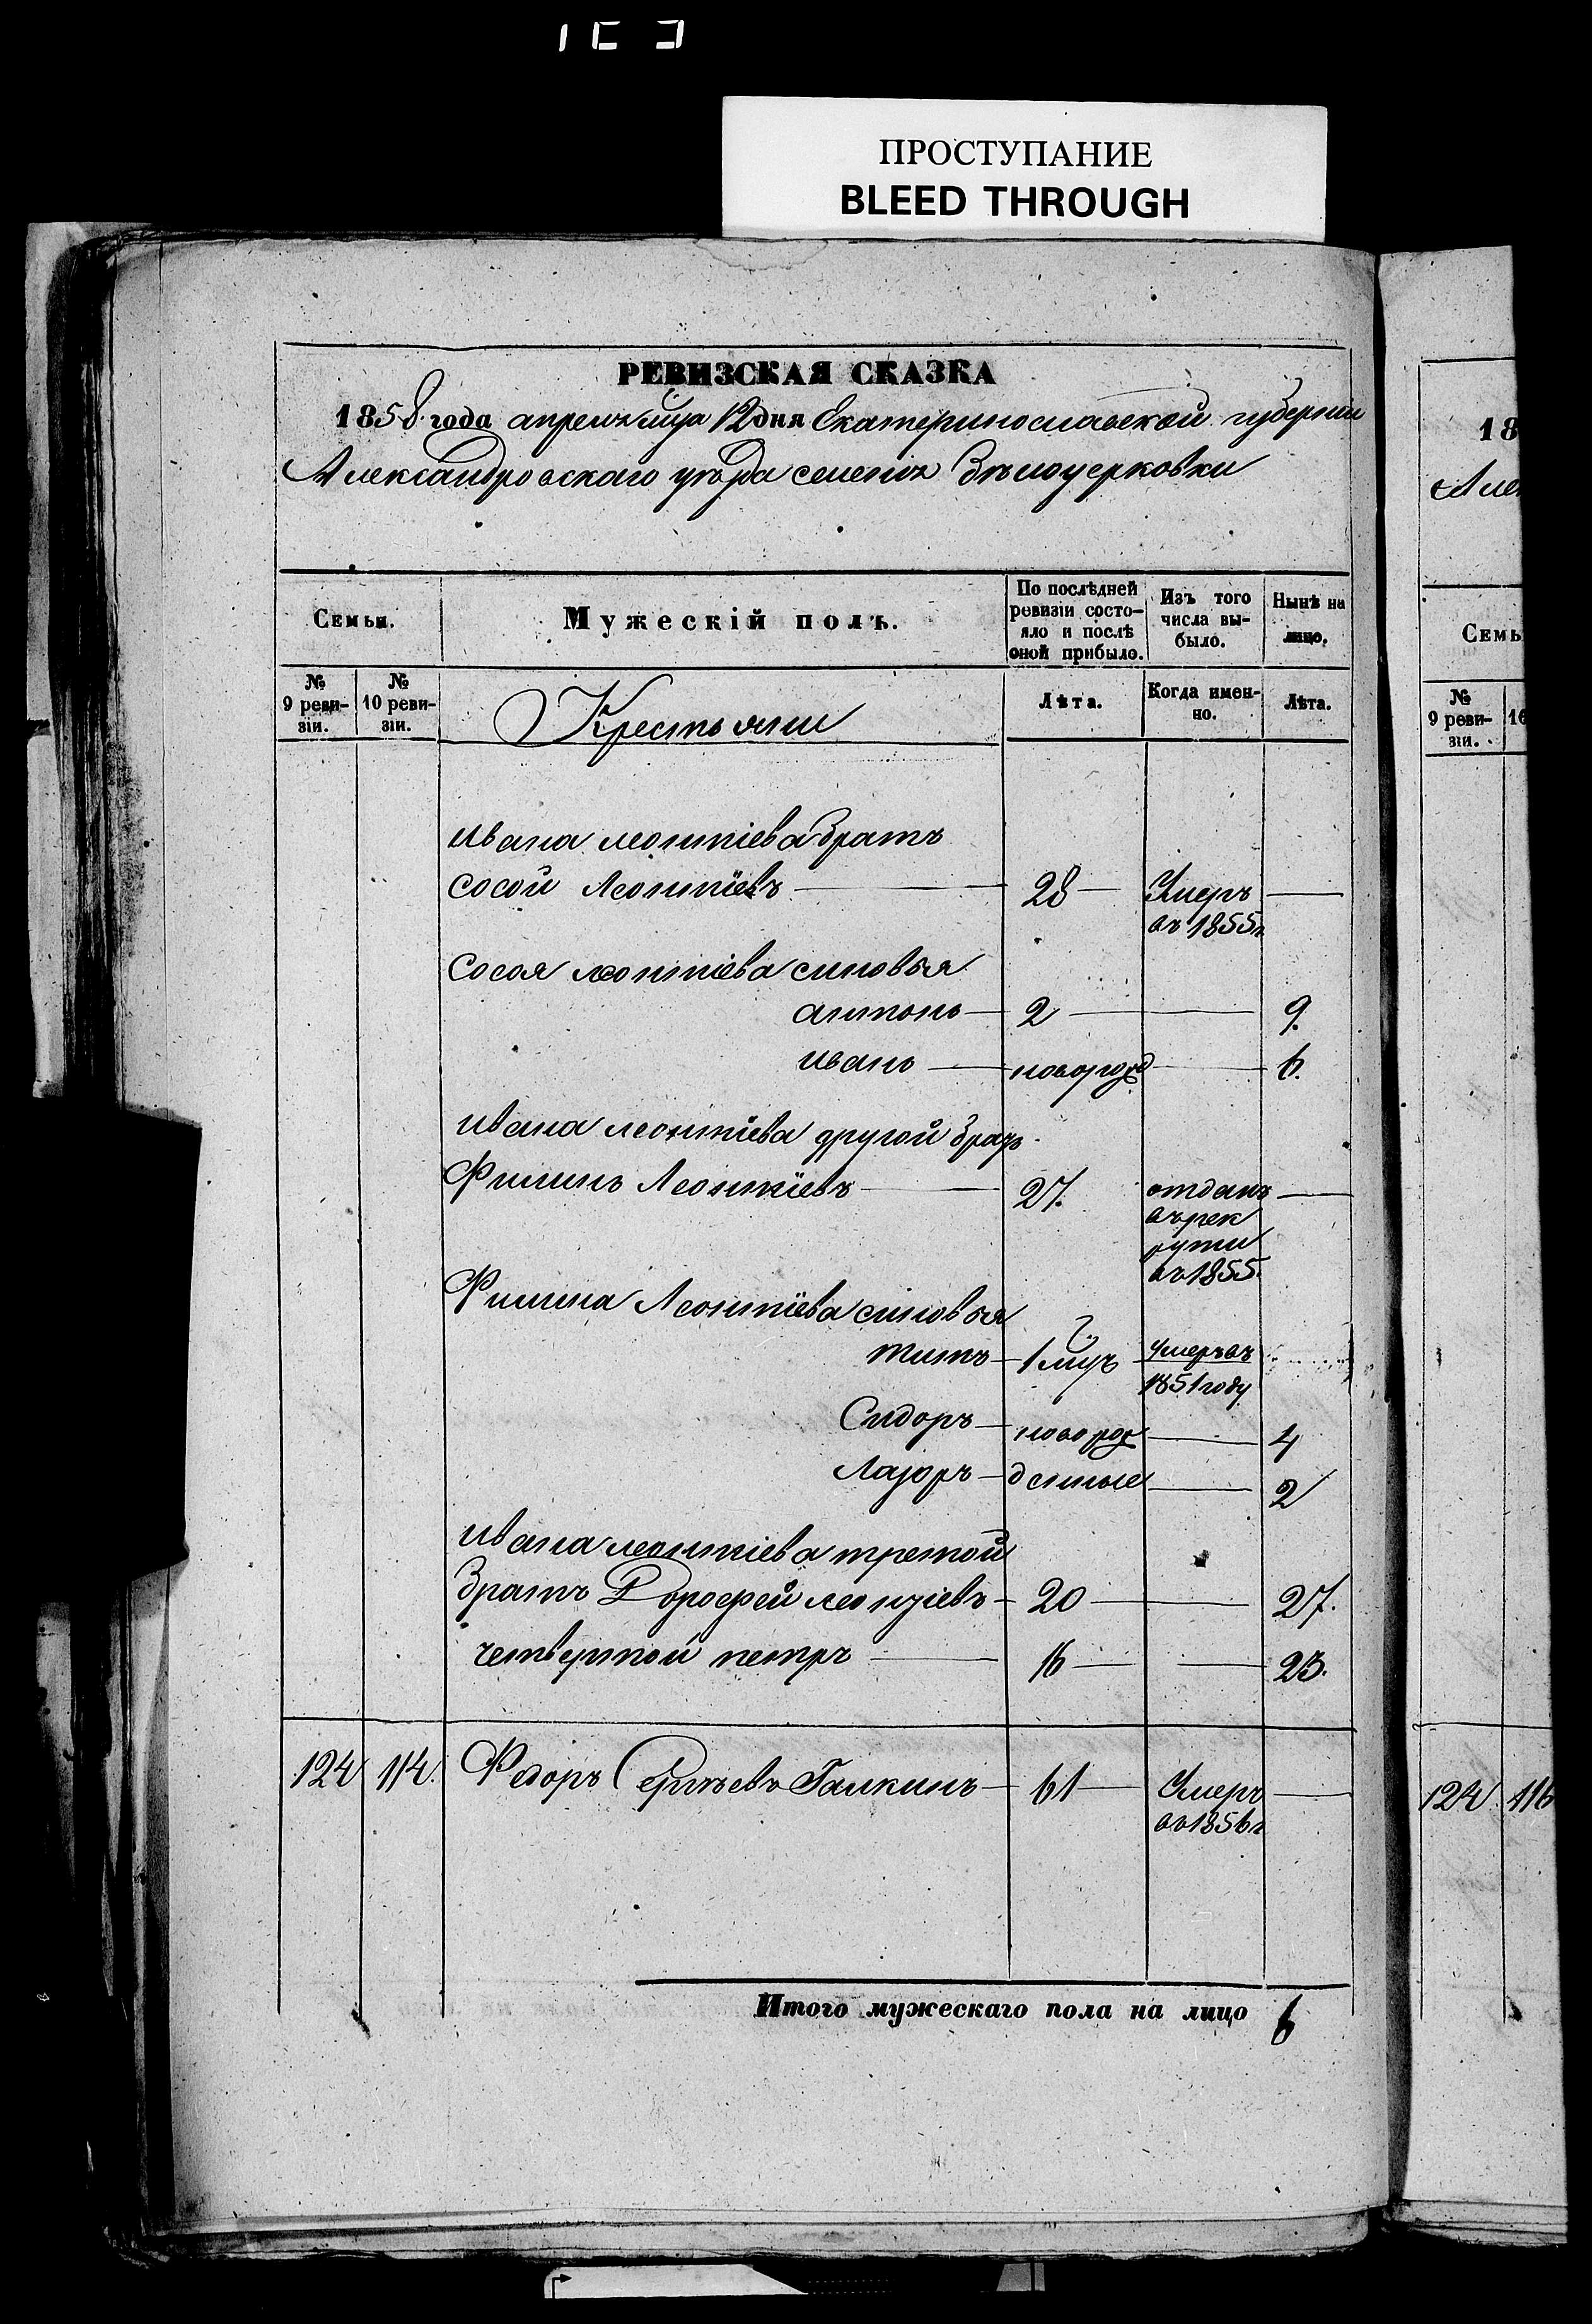 ПРОСТУПАНИЕ
BLEED THROUGH
РЕВИЗСКАЯ СКАЗКА
1858 года апреля мца 12 дня Екатеринославской губернии
Александровскаго уѣзда селенія Бѣлоцерковки
Семьи.
Мужескій полъ.
По послѣдней ревизіи состо-
яло и послѣ
оной прибыло.
Изъ того
числа вы-
было.
Нынѣ на
лицо.
№
9 реви-
зіи.
№
10 реви-
зіи.
Крестьяни
Лѣта.
Когда имен-
но.
Лѣта.
Ивана леонтіева братъ
сосой Леонтіевъ 28 Умеръ
въ 1855г
Сосоя леонтіева синовья
антонъ 2 9.
иванъ новорожд 6.
Ивана леонтіева другой братъ
Филипъ Леонтіевъ 27. отданъ
въ рек
рути
въ 1855.
Филипа Леонтіева синовья
титъ 1 мцъ умеръ въ
1851 году
Сидоръ новорож 4
Лазоръ денные 2
Ивана леонтіева третой
братъ Дорофей леонтіевъ 20 27.
четвертой петръ 16 23.
124 114. Федоръ Сергѣевъ Галкинъ 61 Умеръ
въ 1856г
Итого мужескаго пола на лицо 6
18
Але
Семь
№
9 реви-
зіи.
124 116